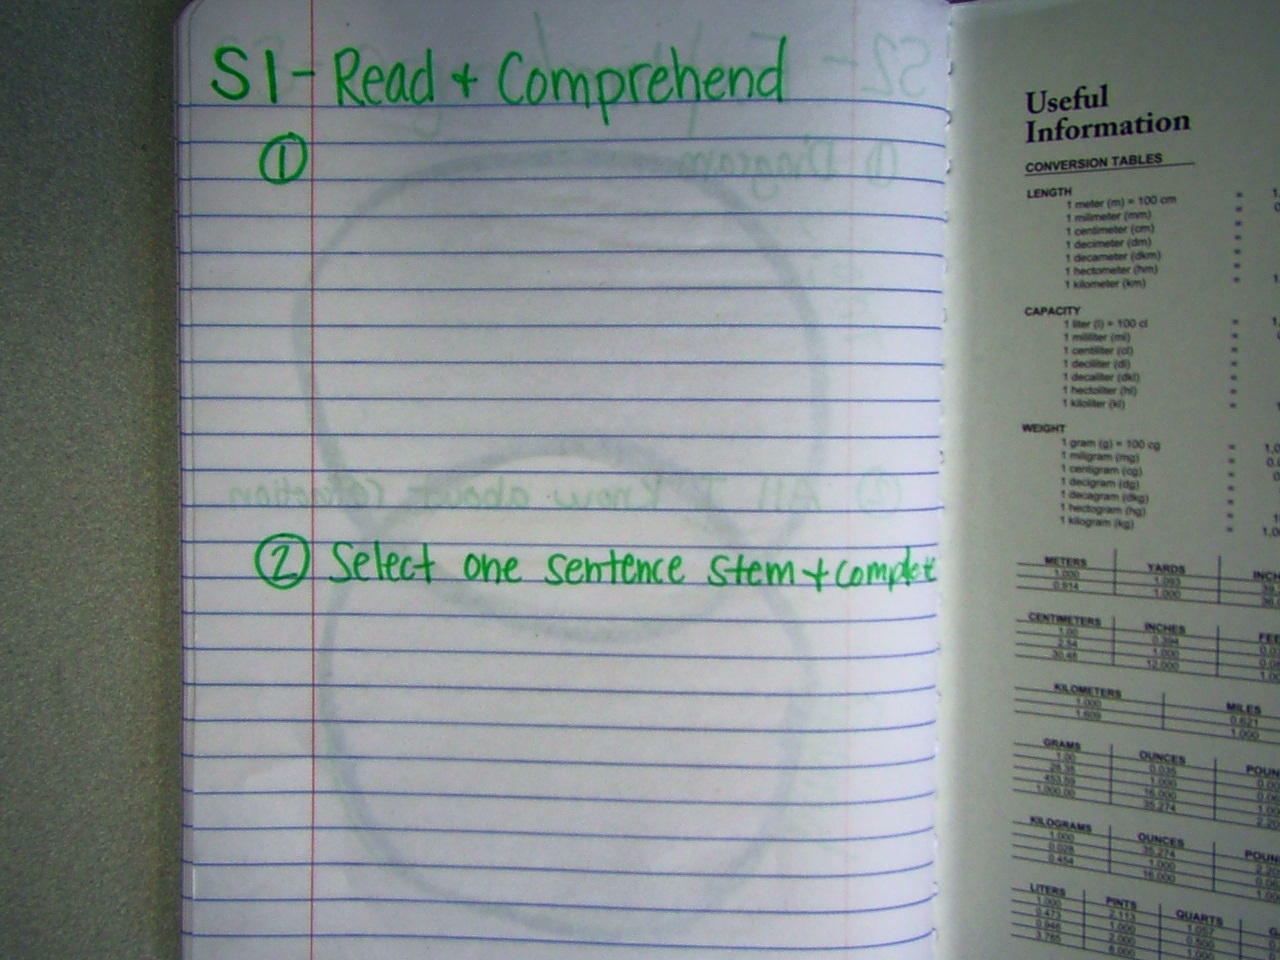 S1- Read + Comprehend
①
② Select one sentence stem + complete
Useful
Information
CONVERSION TABLES
LENGTH
1 meter (m) = 100 cm
1 milimeter (mm)
1 centimeter (cm)
1 decimeter (dm)
1 decameter (dkm)
1 hectometer (hm)
1 kilometer (km)
CAPACITY
1 liter (l) = 100 cl
1 mililiter (ml)
1 centiliter (cl)
1 deciliter (dl)
1 decaliter (dkl)
1 hectoliter (hl)
1 kiloliter (kl)
WEIGHT
1 gram (g) = 100 cg
1 miligram (mg)
1 centigram (cg)
1 decigram (dg)
1 decagram (dkg)
1 hectogram (hg)
1 kilogram (kg)
METERS YARDS
1.000 1.093
0.914 1.000
CENTIMETERS INCHES
1.00 0.394
2.54 1.000
30.48 12.000
KILOMETERS MILES
1.000 0.621
1.609 1.000
GRAMS OUNCES
1.00 0.035
28.35 1.000
453.59 16.000
1,000.00 35.274
KILOGRAMS OUNCES
1.000 35.274
0.028 1.000
0.454 16.000
LITERS PINTS QUARTS
1.000 2.113 1.057
0.473 1.000 0.500
0.946 2.000 1.000
3.785 8.000